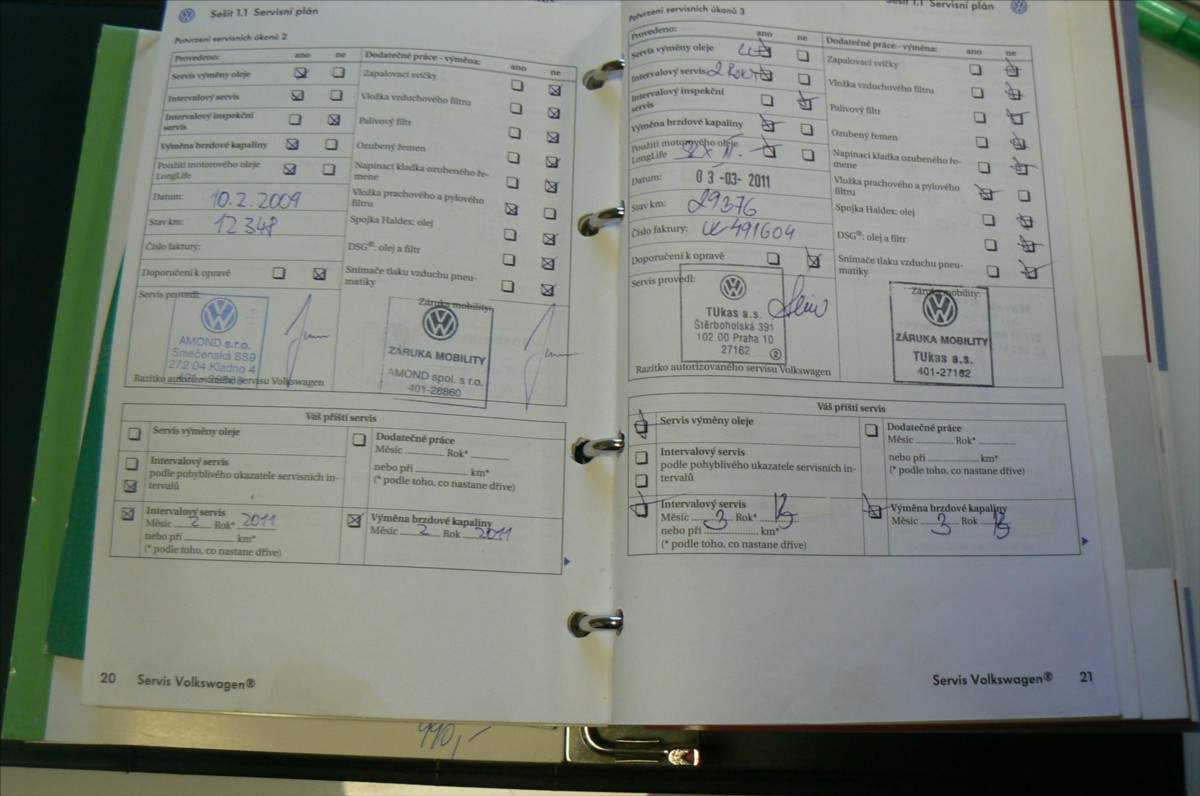 Sešit 1.1 Servisní plán
Potvrzení servisních úkonů 2
Provedeno: ano ne
Servis výměny oleje
Intervalový servis
Intervalový inspekční
servis
Výměna brzdové kapaliny
Použití motorového oleje
LongLife
Datum: 10.2.2009
Stav km: 12 348
Číslo faktury:
Doporučení k opravě
Servis provedl:
AMOND s.r.o.
Smečenská 889
272 04 Kladno 4
Razítko autorizovaného servisu Volkswagen
Dodatečné práce - výměna: ano ne
Zapalovací svíčky
Vložka vzduchového filtru
Palivový filtr
Ozubený řemen
Napínací kladka ozubeného ře-
mene
Vložka prachového a pylového
filtru
Spojka Haldex: olej
DSG®: olej a filtr
Snímače tlaku vzduchu pneu-
matiky
Záruka mobility:
ZÁRUKA MOBILITY
AMOND spol. s r.o.
401-28860
Váš příští servis
Servis výměny oleje
Intervalový servis
podle pohyblivého ukazatele servisních in-
tervalů
Intervalový servis
Měsíc 2 Rok* 2011
nebo při km*
(* podle toho, co nastane dříve)
Dodatečné práce
Měsíc Rok*
nebo při km*
(* podle toho, co nastane dříve)
Výměna brzdové kapaliny
Měsíc 2 Rok 2011
20 Servis Volkswagen®
Sešit 1.1 Servisní plán
Potvrzení servisních úkonů 3
Provedeno: ano ne
Servis výměny oleje
Intervalový servis 2 ROKY
Intervalový inspekční
servis
Výměna brzdové kapaliny
Použití motorového oleje
LongLife
Datum: 03-03-2011
Stav km: 29376
Číslo faktury: 491609
Doporučení k opravě
Servis provedl:
TUkas a.s.
Štěrboholská 391
102 00 Praha 10
27162
2
Razítko autorizovaného servisu Volkswagen
Dodatečné práce - výměna: ano ne
Zapalovací svíčky
Vložka vzduchového filtru
Palivový filtr
Ozubený řemen
Napínací kladka ozubeného ře-
mene
Vložka prachového a pylového
filtru
Spojka Haldex: olej
DSG®: olej a filtr
Snímače tlaku vzduchu pneu-
matiky
Záruka mobility:
ZÁRUKA MOBILITY
TUkas a.s.
401-27162
Váš příští servis
Servis výměny oleje
Intervalový servis
podle pohyblivého ukazatele servisních in-
tervalů
Intervalový servis
Měsíc 3 Rok* 13
nebo při km*
(* podle toho, co nastane dříve)
Dodatečné práce
Měsíc Rok*
nebo při km*
(* podle toho, co nastane dříve)
Výměna brzdové kapaliny
Měsíc 3 Rok 13
Servis Volkswagen® 21
990,-